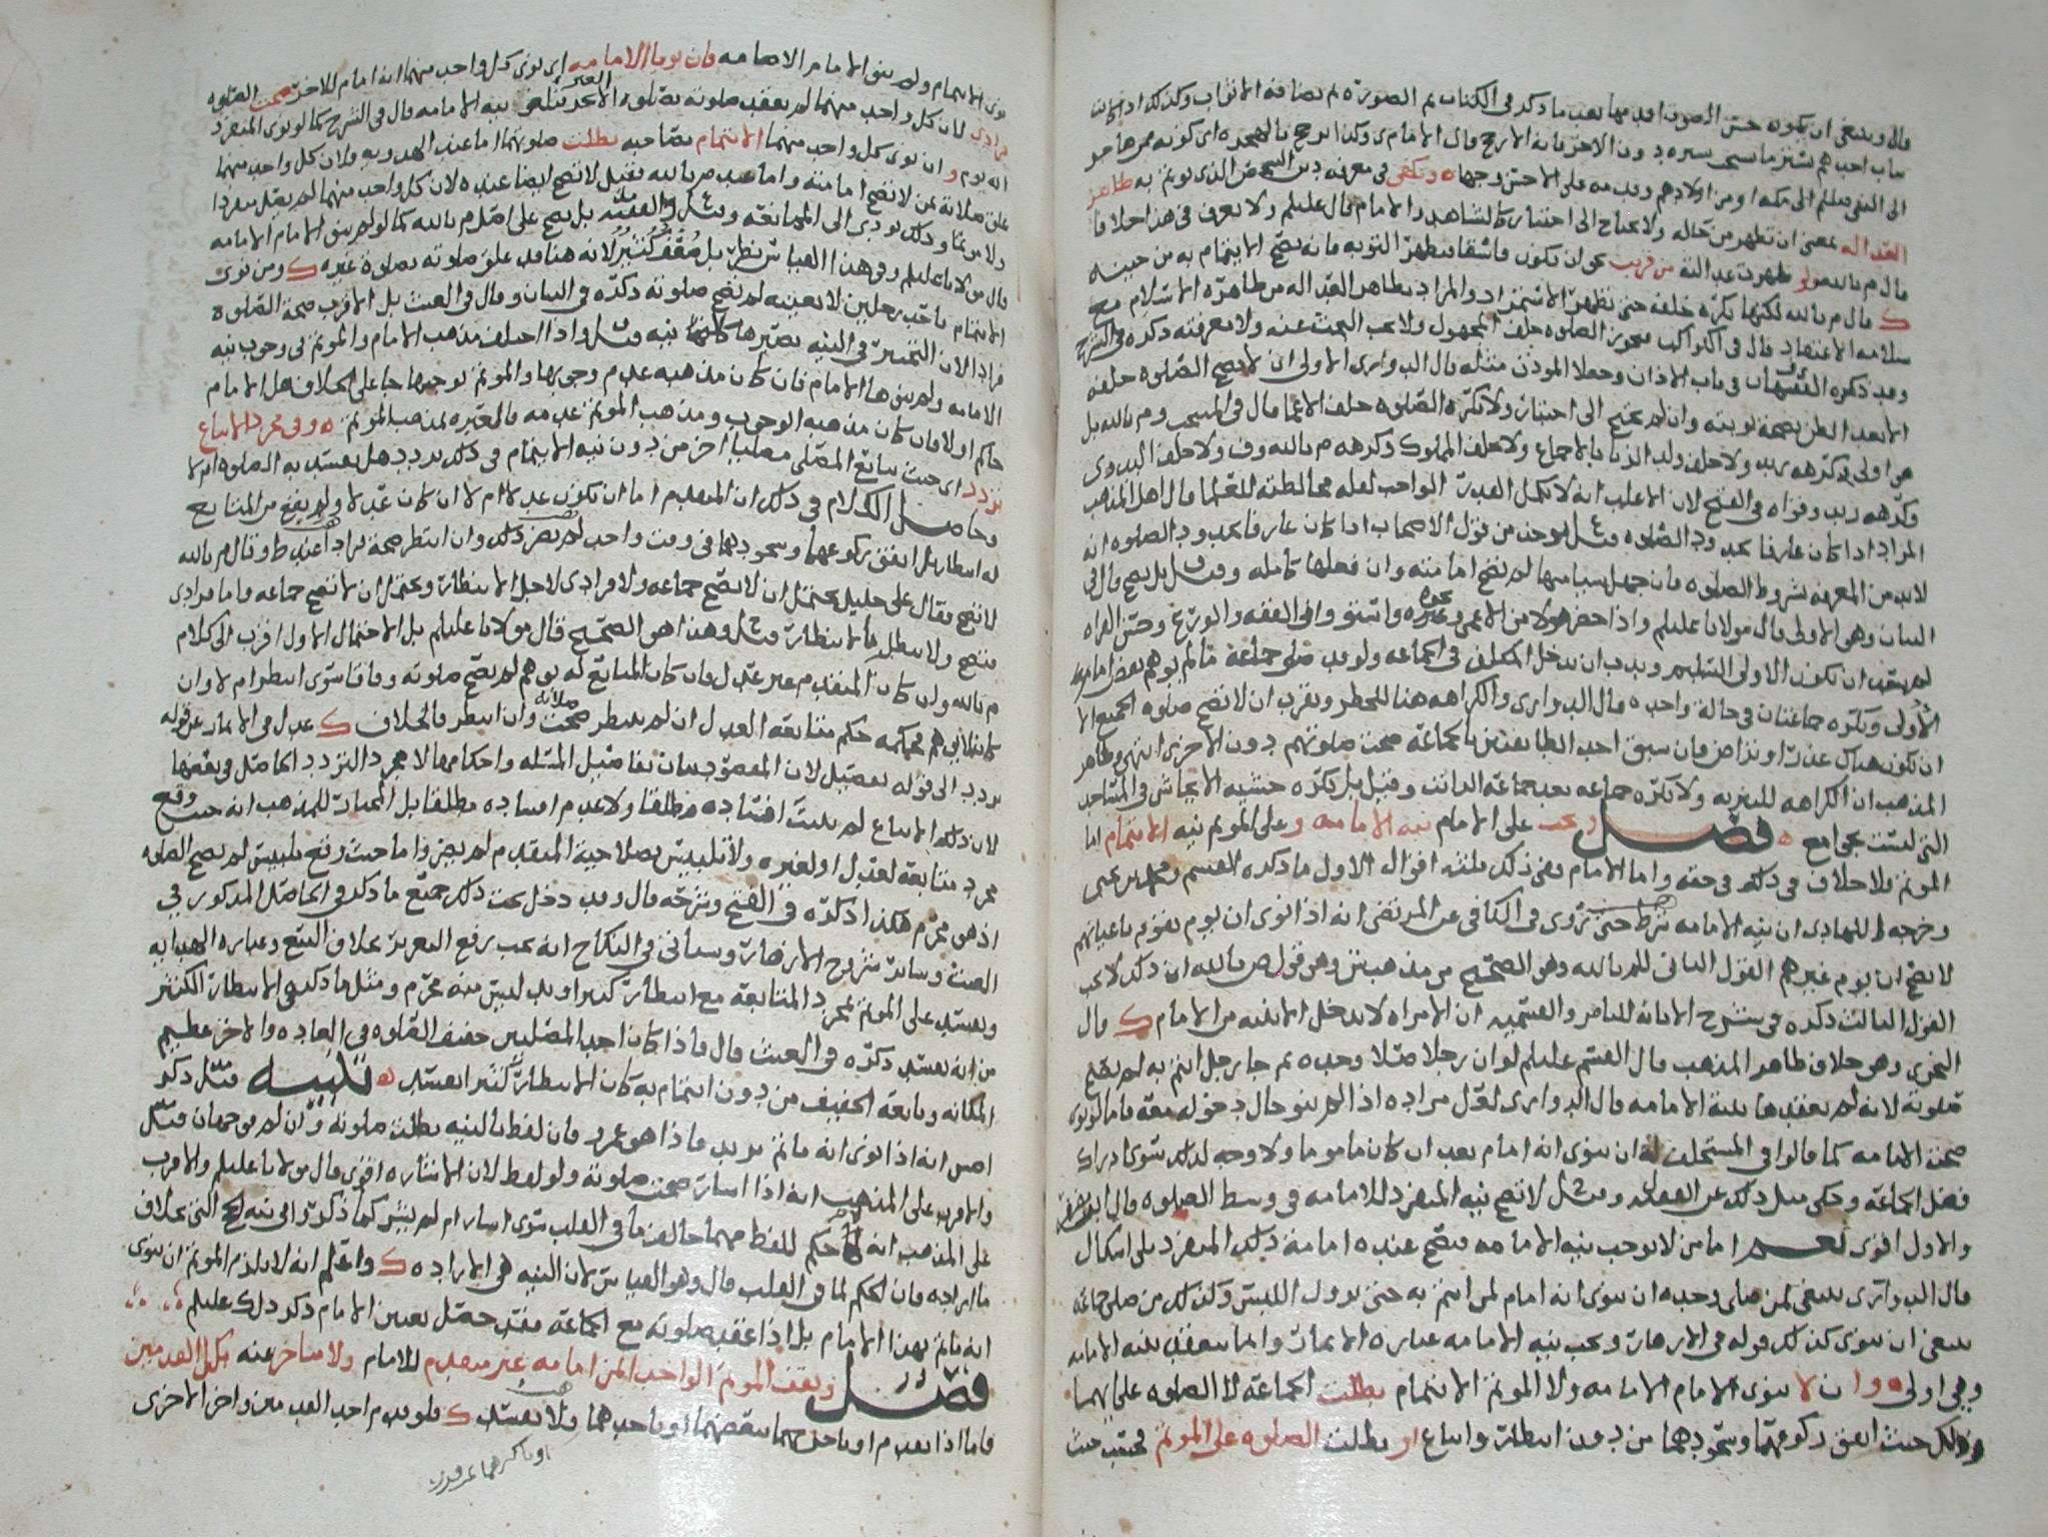 قال وينبغي ان يكون حسن الصوت اقدمها بعد ما ذكر في الكتاب ثم الصورة ثم نضافة الاثواب وكذلك اذا كانت
الى النبي صلعم الى مكه او من اولادهم وقدمه على الاحسن وجها ه ويكفي في معرفة دين الشخص الذي يؤتم به ظاهر
العداله بمعنى ان تظهر من حاله ولا يحتاج الى اختبار كالشاهد والامام قال عليلم ولا يعرف في هذا خلافا
قال م بالله ولو ظهرت عدالته من قريب نحو ان يكون فاسقا فيظهر التوبه فانه يصح الايتمام به من حينه
ك قال م بالله لكنها تكره خلفه حتى يظهر الاستمرار والمراد بظاهر العداله من ظاهره الاسلام مع
سلامه الاعتقاد قال في الكواكب فيجوز الصلوه خلف المجهول ولا يجب البحث عنه ولا معرفته ذكره في الشرح
وقد ذكره الفقهان في باب الاذان وجعلا المؤذن مثله قال الدواري الاولى ان لا يصح الصلوه خلفه
الا بعد الظن بصحة توبته وان لم يحتج الى اختبار ولا تكره الصلوه خلف الاعما قال في المنتخب وم بالله بل
هو اولى وكرهه زيد ولا خلف ولد الزنا بالاجماع ولا خلف المملوك وكرهه م بالله وف ولا خلف البدوي
وكرهه زيد وقواه في الفتح لان الاغلب انه لا يكمل القدر الواجب لقلة مخالطته للعلما قال اهل المذهب
المراد اذا كان عارفا بحدود الصلوه قيل يوخذ من قول الاصحاب اذا كان عارفا بحدود الصلوه انه
لابد من المعرفه بشروط الصلوه فان جهل شيا منها لم تصح امامته وان فعلها كامله وقيل بل يصح قال في
البيان وهو الاولى قال مولانا عليلم واذا حضر هولا من الاعمى وغيره واستووا في الفقه والورع وحسن القراه
لم يبعد ان تكون الاولى السليم وندب ان يدخل المتكلف في الجماعه ولو قد صلى جماعة ما لم يوهم بعض امام
الاولى وتكره جماعتان في حالة واحده قال الدواري والكراهه هنا للحظر ويقرب ان لا تصح صلوه الجميع الا
ان تكون هناك عذر او تراض فان سبق احد الطايفتين بالجماعة صحت صلوتهم دون الاخرى انتهى وظاهر
المذهب ان الكراهه للتنزيه ولا تكره جماعه بعد جماعة الراتب وقيل بل تكره خشيه الايحاش في المساجد
التي ليست بجوامع ه فصل ويجب على الامام نيه الامامه وعلى المؤتم نيه الايتمام اما
المؤتم فلا خلاف في ذلك في حقه واما الامام ففي ذلك ثلثه اقوال الاول ما ذكره القسم ومحمد بن يحيى
وخرجه للهادي ان نيه الامامه شرط حتى روي في الكافي عن المرتضى انه اذا نوى ان يوم بقوم باعيانهم
لا يصح ان يوم غيرهم القول الثاني للم بالله وهو الصحيح من مذهب ش وهو قول ص بالله ان ذلك لا يجب
القول الثالث ذكره في شرح الابانة للناصر والقسميه ان الامراه لا تدخل الا بنيه من الامام ك قال
النحوي وهو خلاف ظاهر المذهب قال القسم عليلم لو ان رجلا صلا وحده ثم جا رجل ائتم به لم تصح
صلوته لانه لم يعقدها بنية الامامه قال الدواري لعل مراده اذا لم ينو حال دخوله معه فاما لو نوى
صحت الامامه كما قالوا في المستخلف انه ان ينوي انه امام بعد ان كان ماموما ولا وجه لذلك سوى ادراك
فضل الجماعة وحكى مثل ذلك عن القفال وقيل لا تصح نيه المنفرد للامامه في وسط الصلوه قال ابو مضر
والاول اقوى نعم اما من لا يوجب نيه الامامه فتصح عنده امامة ذلك المنفرد بلى اشكال
قال الدواري ينبغي لمن صلى وحده ان ينوي انه امام لمن ائتم به حتى يزول اللبس وكذلك من صلى جماعه
ينبغي ان ينوي كذلك قوله في الازهار ويجب نيه الامامه عباره الاثمار وانما تنعقد بنيه الامامه
وهي اولى ه وان لا ينوى الامام الامامه ولا المؤتم الايتمام بطلت الجماعة لا الصلوه عليهما
وذلك حيث اتفق ركوعهما وسجودهما من دون انتظار واتباع او بطلت الصلوه على المؤتم فحسب حيث
نوى الايتمام ولم ينو الامام الامامه فان نويا الامامه اي نوى كل واحد منهما انه امام للاخر صحت الصلوه
فرادى لان كل واحد منهما لم يعقد صلوته بصلوه الاخر فتلغى نيه الامامه قال في الشرح كما لو نوى المنفرد
انه يوم وان نوى كل واحد منهما الايتمام بصاحبه بطلت صلوتهما اما عند الهدويه فلان كل واحد منهما
علق صلاته بمن لا تصح امامته واما عند م بالله فقيل لا تصح ايضا عنده لان كل واحد منهما لم يصل منفردا
ولا مؤتما وذلك يودي الى الممانعه وقيل والفقيه بل يصح على اصل م بالله كما لو لم ينو الامام الامامه
قال مولانا عليلم وفي هذا القياس نظر لانه هنا قد علق صلوته بصلوة غيره ك ومن نوى
الايتمام باحد رجلين لا بعينه لم تصح صلوته ذكره في البيان وقال في الغيث بل الاقرب صحة الصلوه
فرادا لان التخيير في النيه يصيرها كلا نيه قيل واذا اختلف مذهب الامام والمؤتم في وجوب نيه
الامامه ولم ينوها الامام فان كان مذهبه عدم وجوبها والمؤتم يوجبها جا على الخلاف هل الامام
حاكم او لا فان كان مذهبه الوجوب ومذهب المؤتم عدمه فالعبره بمذهب المؤتم ه وفي مجرد الاتباع
تردد اي حيث تابع المصلي مصليا اخر من دون نيه الايتمام في ذلك تردد هل يفسد به الصلوه ام لا
وحاصل الكلام في ذلك ان المتقدم اما ان تكون عدلا ام لا ان كان عدلا ولم يقع من المتابع
له انتظار بل اتفق ركوعهما وسجودهما في وقت واحد لم يضر ذلك وان انتظر صحة فرادا عند ط وقال م بالله
لا تصح وقال علي خليل يحتمل ان لا تصح جماعه ولا فرادى لاجل الانتظار ويحتمل ان لا تصح جماعه واما فرادى
فتصح ولا تبطل بالانتظار قيل وهذا هو الصحيح قال مولانا عليلم بل الاحتمال الاول اقرب الى كلام
م بالله وان كان المتقدم غير عدل فان كان المتابع له يوهم لم تصح صلوته وفاقا سوى انتظر ام لا وان
كان لا يوهم فحكمه حكم متابعة العدل ان لم ينتظر صحت صلاته وان انتظر فالخلاف ك عدل في الاثمار عن قوله
تردد الى قوله تفصيل لان المقصود بيان تفاصيل المسئله واحكامها لا مجرد التردد الحاصل في بعضها
لان ذلك الاتباع لم يثبت افساده مطلقا ولا عدم افساده مطلقا بل المختار للمذهب انه حيث وقع
مجرد متابعة لعدل او لغيره ولا تلبيس بصلاحية المتقدم لم يضر واما حيث وقع تلبيس لم تصح الصلوه
اذ هو محرم هكذا ذكره في الفتح وشرحه قال وقد دخل تحت ذلك جميع ما ذكر في الحاصل المذكور في
الغيث وساير شروح الازهار وسياتي في النكاح انه يجب رفع التغرير بخلاف البيع وعباره الهدايه
وتفسد على المؤتم بمجرد المتابعة مع انتظار كثير او تلبيس منه محرم ومثل ما ذكر في الانتظار الكثير
من انه يفسد ذكره في الغيث قال فاذا كان احد المصليين خفيف الصلوه في العاده والاخر عظيم
المكانه وتابعه الخفيف من دون ايتمام به كان الانتظار كثيرا فيفسد ه تنبيه قيل ذكر
اص انه اذا نوى انه ياتم بزيد فاذا هو عمرو فان لفظ بالنيه بطلت صلوته وان لم فوجهان قيل
والاقرب على المذهب انه اذا اشار صحت صلوته ولو لفظ لان الاشاره اقوى قال مولانا عليلم والاقرب
على المذهب انه لا حكم للفظ مهما خالف ما في القلب سوى اشار ام لم يشر كما ذكروا في نيه الحج التي بخلاف
ما اراده فان الحكم لما في القلب قال وهو القياس لان النيه هي الاراده ك واعلم انه لا يلزم المؤتم ان ينوي
انه ياتم بهذا الامام بل اذا عقد صلوته مع الجماعة فقد حصل تعيين الامام ذكر ذلك عليلم
فصل ويقف المؤتم الواحد ايمن امامه غير متقدم للامام ولا متاخر عنه بكل القدمين
فاما اذا تقدم او تاخر بهما ببعضهما او باحدهما فلا تفسد ك فلو تقدم احد القدمين واخر الاخرى